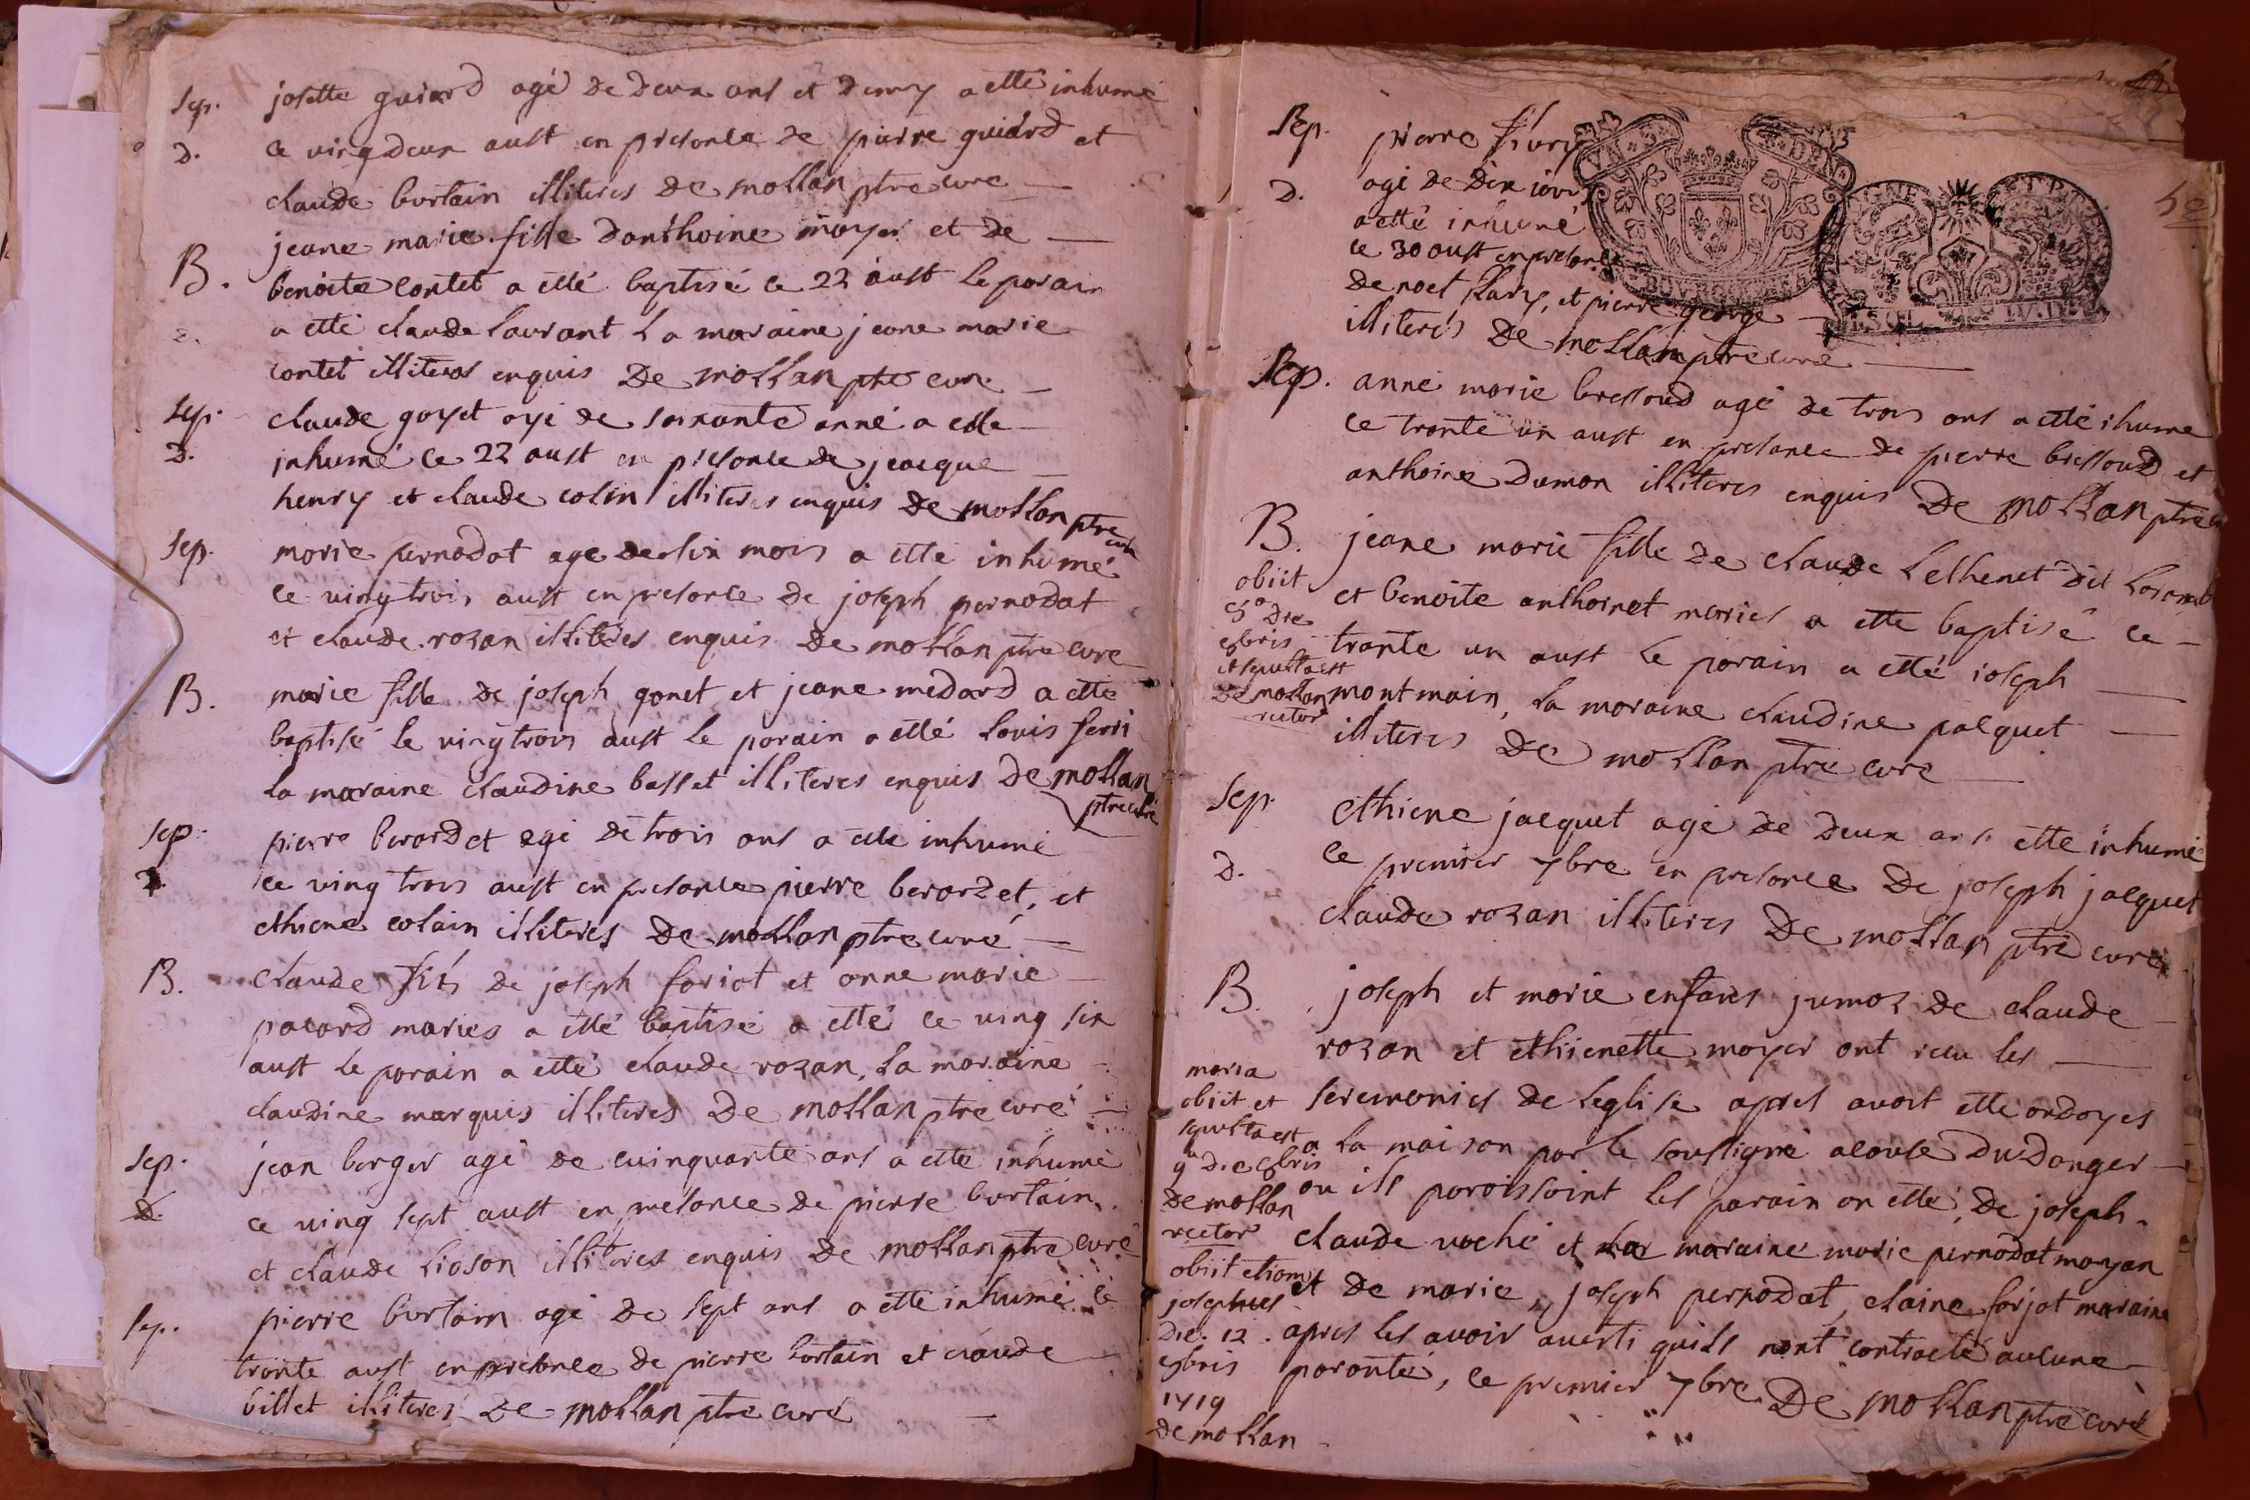 Sep. josette guiard agé de deux ans et demy a etté inhumé
D. ce vingdeux aust en presence de pierre guiard et
claude burtain illiteres De mollan ptre curé
B. jeane marie fille d'anthoine moyer et de
benoite contet a etté baptisé ce 22 aust le parain
a etté claude laurant la maraine jeane marie
contet illiteres enquis De mollan ptre curé
Sep. claude goyet agé de soixante anné a etté
D. inhumé ce 22 aust en presence de jeacque
henry et claude colin illiteres enquis de mollan ptre curé
Sep. marie pernodat age de six mois a etté inhumé
ce vingtrois aust en presence de joseph pernodat
et claude rozan illiteres enquis De mollan ptre curé
B. marie fille de joseph gonet et jeane medard a etté
baptisé le vingtrois aust le parain a etté louis ferri
la maraine claudine basset illiteres enquis de mollan
ptre curé
Sep. pierre berardet agé de trois ans a etté inhumé
D. ce ving trois aust en presance pierre berardet, et
ethiene colain illiteres De mollan ptre curé
B. Claude fils de joseph foriot et anne marie
pacard maries a etté baptisé a etté ce ving six
aust le parain a etté claude rozan, la maraine
claudine marquis illiteres De mollan ptre curé
Sep. jean berger agé de cuinquante ans a etté inhumé
D. ce ving sept aust en presence de pierre burtain
et claude lioson illiteres enquis De mollan ptre curé
Sep. pierre burtain agé de sept ans a etté inhumé ce
trante aust en presence de pierre burtain et claude
billet illiteres De mollan ptre curé
52
Sep. pierre flury
D. agé de dix jours
a etté inhumé
ce 30 aust en presance
de noel flury, et pierre george
illiterés De mollan ptre curé
Sep. anne marie bressoud agé de trois ans a etté ihume
ce trante un aust en presance de pierre bressoud et
anthoine dumon illiteres enquis De mollan ptre
B. jeane marie fille de claude lethenet dit
obiit et benoite anthoinet maries a etté baptisé ce
die
bris trante un aust le parain a etté joseph
et sepulta est
De mollan montmain, la maraine claudine pacquet
rector illiteres De mollan ptre curé
Sep. ethiene jacquet agé de deux ans etté inhumé
D. ce premier 7bre en presence De joseph jacquet
claude rozan illiteres De mollan ptre curé
B. joseph et marie enfans jumoz de claude
rozan et ethienette moyer ont receu les
maria
obiit et seremonies de leglise apres avoir etté ondoyes
sepulta est
a la maison par le soussigné acause Du danger
9 die bris
De mollan ou ils paroissoint les parain on etté, De joseph
rector claude vaché et la maraine marie pernodat moyan
obiit etiam et de marie, joseph pernodat, claine forjot maraine
josephus
die 12 apres les avoir averti quils nont contracté aucune
bris paronté, ce premier 7bre De mollan ptre curé
1719
de mollan